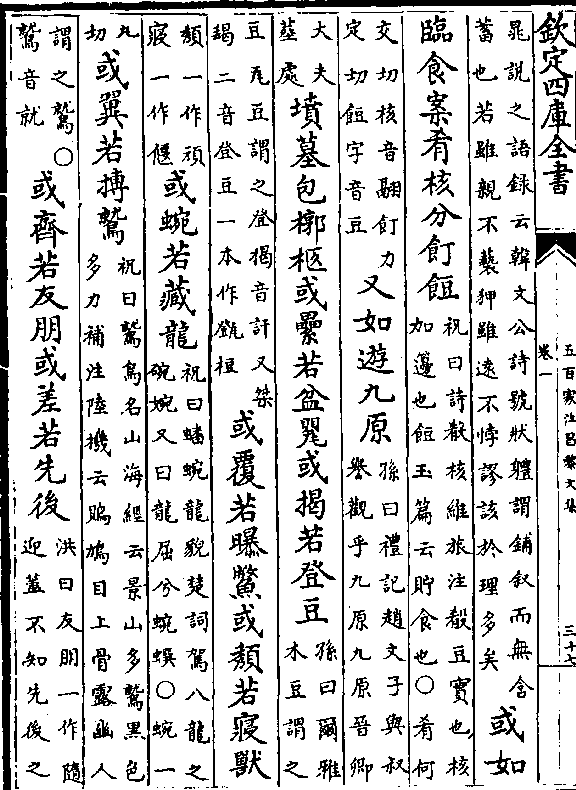 欽定四庫全書
卷一
五百家注昌黎文集
三十七
晁說之語録云韓文公詩號狀體謂鋪叙而無含
蓄也若雖親不䙝狎雖遠不悖謬該於理多矣
或如
臨食案肴核分飣餖
祝曰詩殽核維旅注殽豆實也核
加籩也餖玉篇云貯食也〇肴何
交切核音翮飣力
定切餖字音豆
又如遊九原
孫曰禮記趙文子與叔
譽觀乎九原九原晉卿
大夫
塟處
墳墓包槨柩或纍若盆罌或揭若登豆
孫曰爾雅
木豆謂之
豆瓦豆謂之登揭音訐又桀
竭二音登豆一本作㽅桓
或覆若曝鱉或頽若寢獸
頽一作頑
寢一作偃
或蜿若藏龍
祝曰蟠蜿龍貌楚詞駕八龍之
碗婉又曰龍屈兮蜿蟤〇蜿一
丸
切
或翼若搏鷲
祝曰鷲鳥名山海經云景山多鷲黑色
多力補注陸機云鵰鳩目上骨露幽人
謂之鷲〇
鷲音就
或齊若友朋或差若先後
洪曰友朋一作隨
迎蓋不知先後之